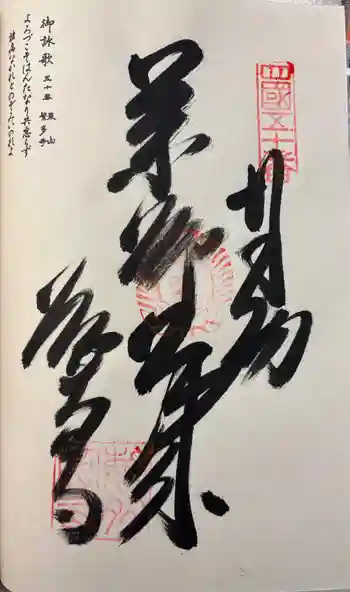 四國五十番
奉納
薬師如来
繁多寺
御詠歌 五十番 東山 繁多寺
よろづこそはんたなり共怠らず
諸病なかれとのぞみいのれよ